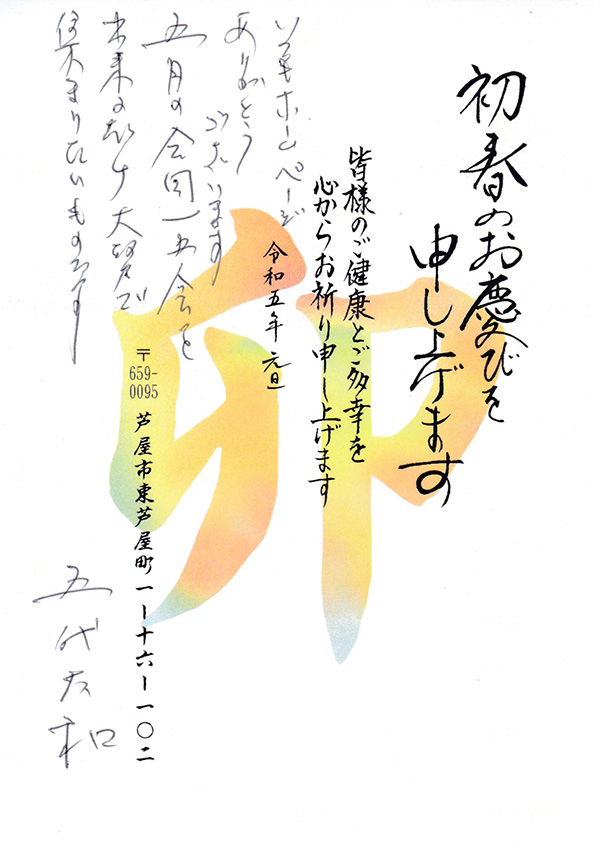 初春のお慶びを
申し上げます
皆様のご健康とご多幸を
心からお祈り申し上げます
令和五年 元旦
卯
いつもホームページ
ありがとう
ございます
五月の会同一五会を
出来るだけ大勢で
集まりたいものです
〒
659-
0095
芦屋市東芦屋町一ー十六ー一〇二
五代友和